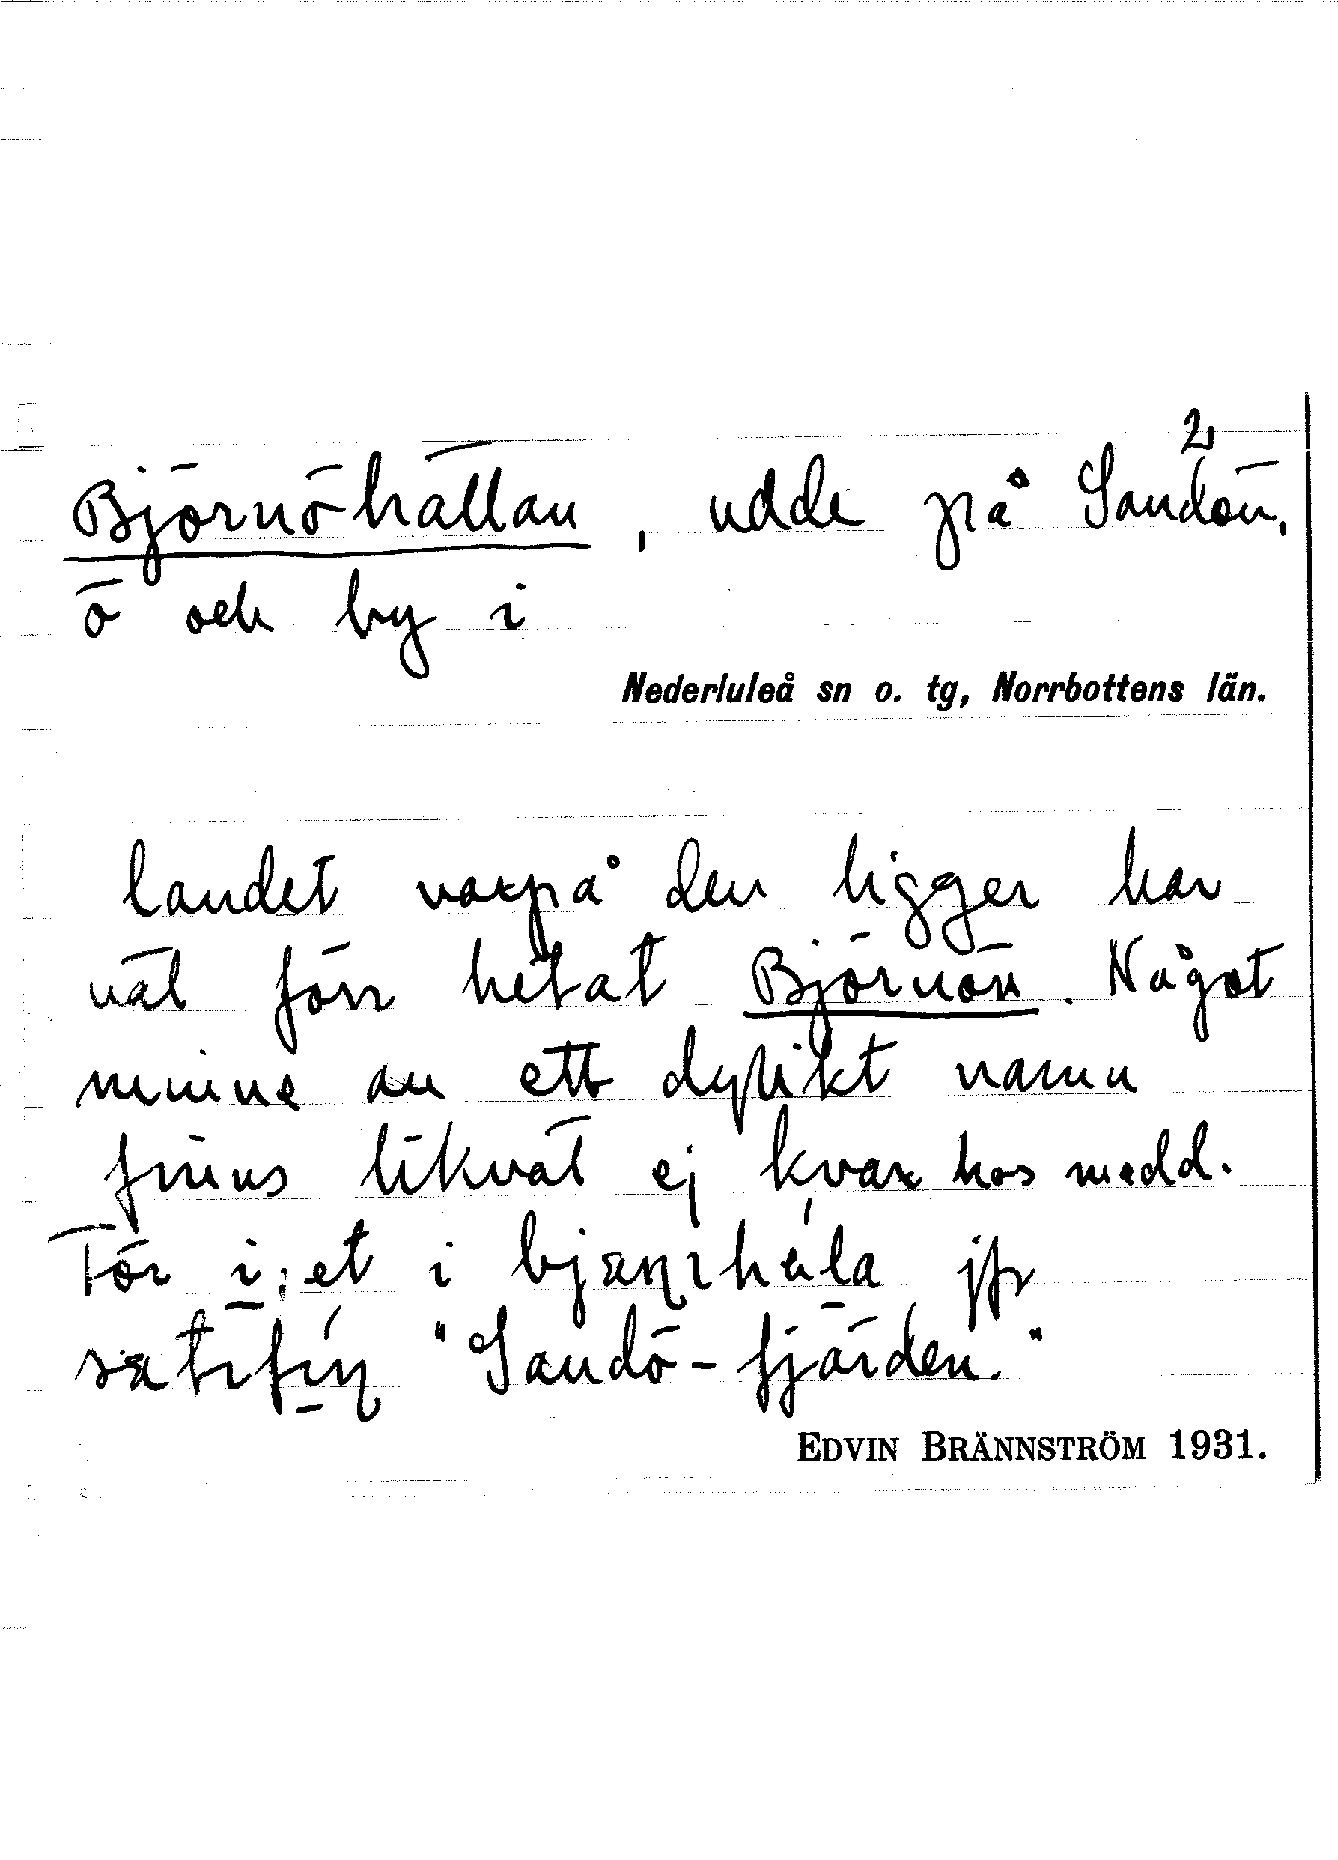 2
Björnöhällan, udde på Sandön,
ö och by i
Nederluleå sn o. tg, Norrbottens län.
landet varpå den ligger har
väl förr hetat Björnön. Något
minne av ett dylikt namn
finns likväl ej kvar hos medd.
För i:et i bjɶɳıhéla jfr
satıfíɳ "Sandö-fjärden."
EDVIN BRÄNNSTRÖM 1931.